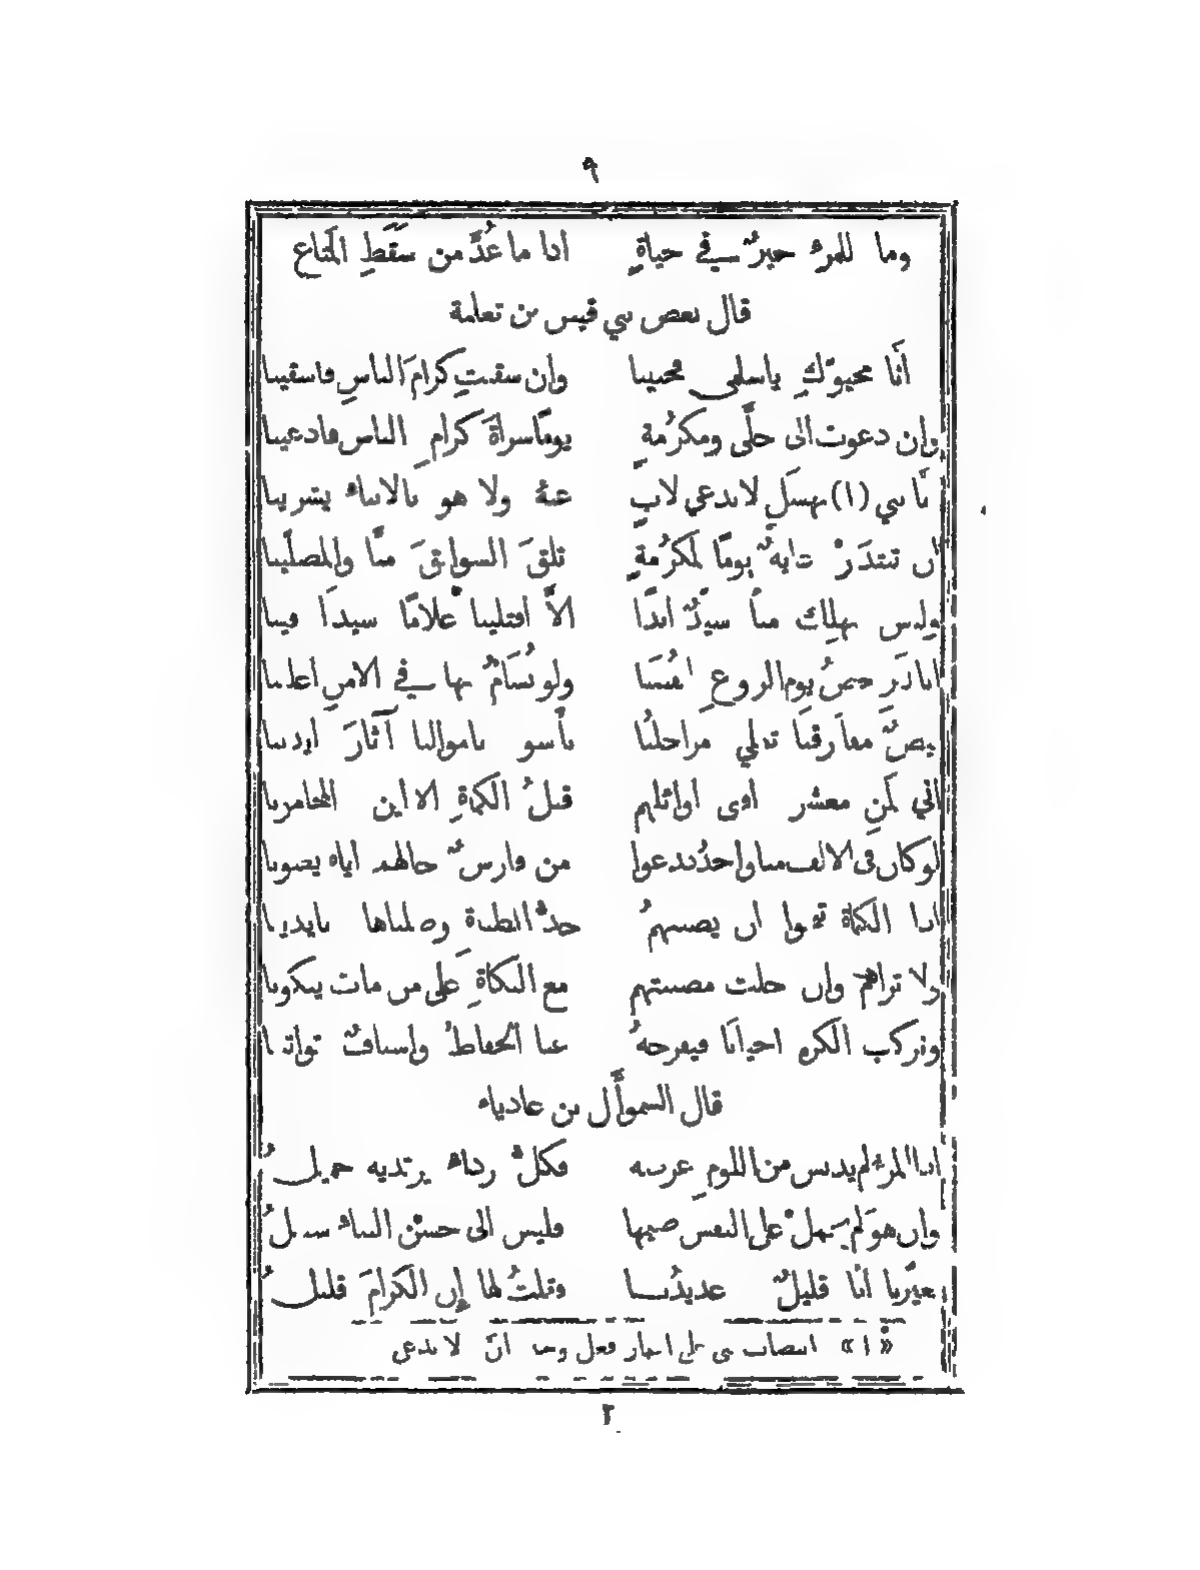 ٩
وما للمرء خيرٌ في حياةٍ اذا ما عُدَّ من سَقَطِ المَتاع
قال بعض بني قيس بن ثعلبة
انَّا محيوّكِ ياسلمى فحيينا وان سقيتِ كرامَ الناسِ فاسقينا
وان دعوت الى جلَّى ومكرُمةٍ يومًا سراةَ كرامِ الناس فادعينا
انَّا بني (١) نهشَلٍ لا ندعي لابٍ عنهُ ولا هو بالابناء يشرينا
ان تبتدَرْ غايةٌ يومًا لمَكرُمةٍ تلقَ السوابقَ منَّا والمصلّينا
وليس يهلِك منَّا سيّدٌ ابدًا الَّا افتلينا غلامًا سيدًا فينا
انا لنرخصُ يوم الروعِ انفُسَنا ولو نُسَامُ بها في الامنِ اغلينا
بيضٌ مفارقنَا تغلي مراجلنُا نأسو باموالنا آثارَ ايدينا
اني لَمن معشرٍ افنى اوائلهم قيلُ الكماةِ الا اين المحامونا
لوكان في الالف منا واحدٌ فدعوا من فارسٌ خالهم اياه يعنونا
اذا الكماة تنحوا ان يصيبهمُ حدُّ الظباة وصلناها بايدينا
ولا تراهم وان جلت مصيبتهم مع البكاةِ عَلى من مات يبكونا
ونركب الكره احيانًا فيفرجهُ عنا الحفاظُ واسيافٌ تواتينا
قال السموأَل بن عادياء
اذا المرءُ لم يدنس من اللومِ عرضه فكلُّ رداءٍ يرتديه جميلُ
وان هوَ لم يَحملْ على النفس ضيمها فليس الى حسنِ الثناء سبيلُ
تعيّرنا أنَّا قليلٌ عديدُنا فقلتُ لها إن الكرامَ قليلُ
«١» انتصاب بني على اضمار فعل وخبر انّ لا ندعي
٢